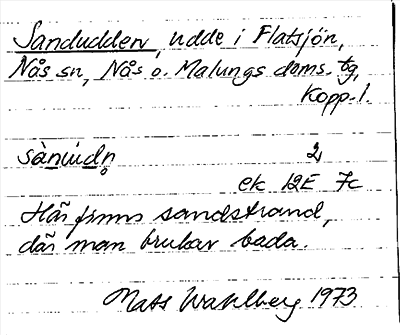 Sandudden, udde i Flatsjön,
Nås sn, Nås o. Malungs doms. tg,
Kopp. l.
sànúdn̥ 2,
ek 12E 7c
Här finns sandstrand,
där man brukar bada.
Mats Wahlberg 1973